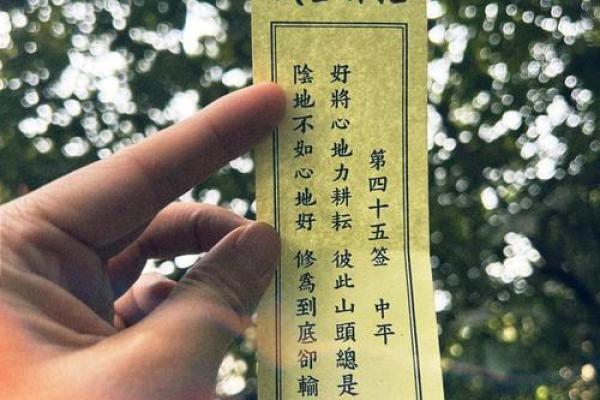 第四十五签 中平
好將心地力耕耘 彼此山頭總是
陰地不如心地好 修為到底卻輸